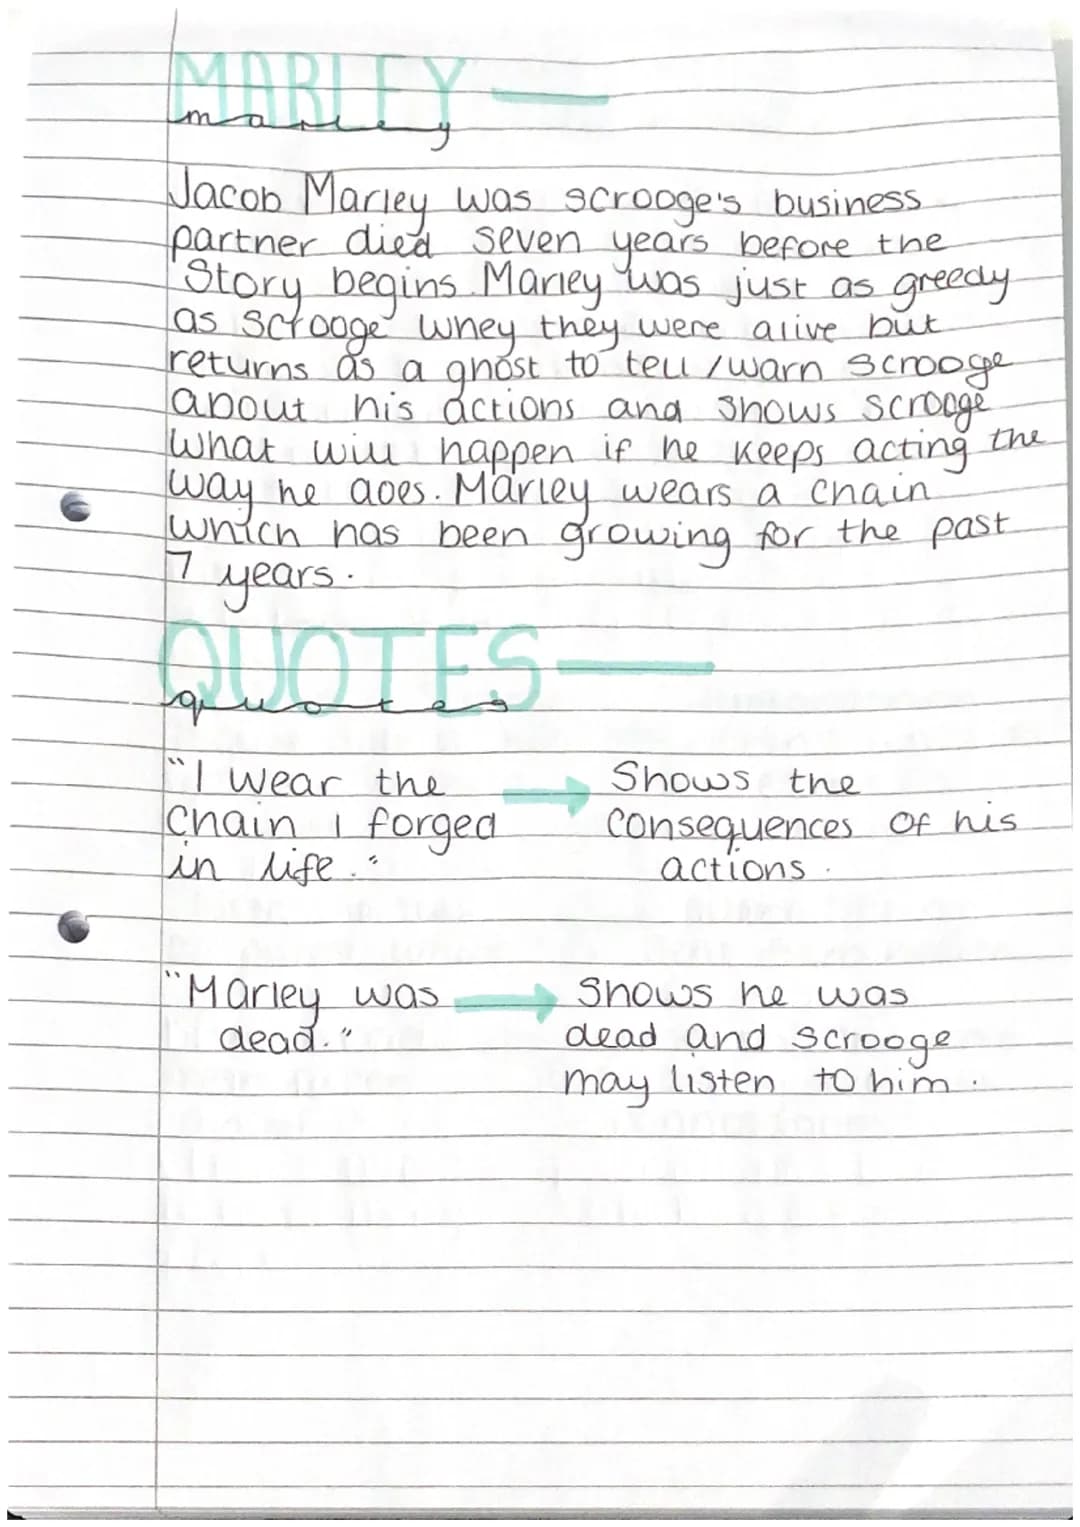 MARLEY
marley
Jacob Marley was scrooge's business
partner died seven years before the
Story begins. Marley was just as greedy
as scrooge whey they were alive but
returns as a ghost to tell /warn scrooge
about his actions and shows scrooge
what will happen if he keeps acting the
way he does. Marley wears a chain
which has been growing for the past
7 years.
QUOTES
quotes
"I wear the
chain I forged
in life."
Shows the
consequences of his
actions.
"Marley was
dead."
Shows he was
dead and scrooge
may listen to him.